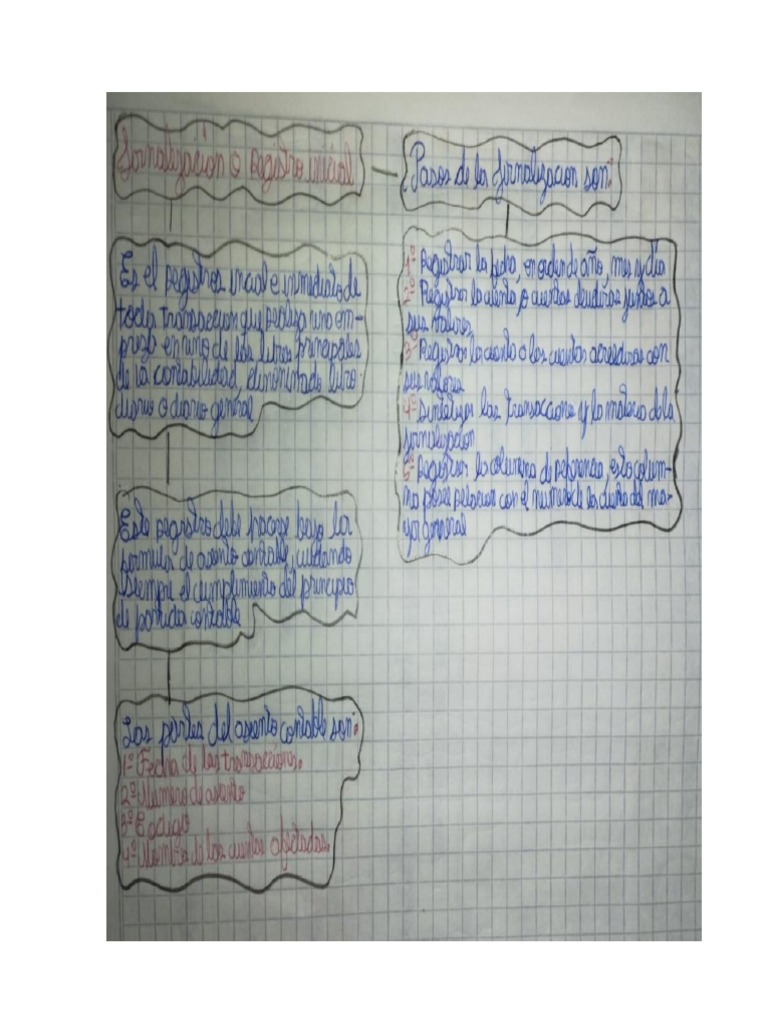 Jornalización o Registro inicial
Es el registros inicial e inmediato de
toda transaccion que realiza una em-
presa en uno de los libros principales
de la contabilidad, denominado libro
diario o diario general
Este registro debe hacerse bajo la
formula de asiento contable, cuidando
siempre el cumplimiento del principio
de partida contable
Las partes del asiento contable son:
1º Fecha de las transacciones.
2º Numero de asiento
3º Codigo
4º Nombres de las cuentas afectadas.
Pasos de la Jornalizacion son:
1º Registrar la fecha, en orden de año, mes y dia
2º Registrar la cuenta o cuentas deudoras juntos a
sus valores
3º Registrar la cuenta o las cuentas acreedoras con
sus valores
4º las transaccione y la materia de la
jornalizacion
5º Registrar la columna de referencia, esta colum-
na posee relacion con el numero de los del ma-
yor general